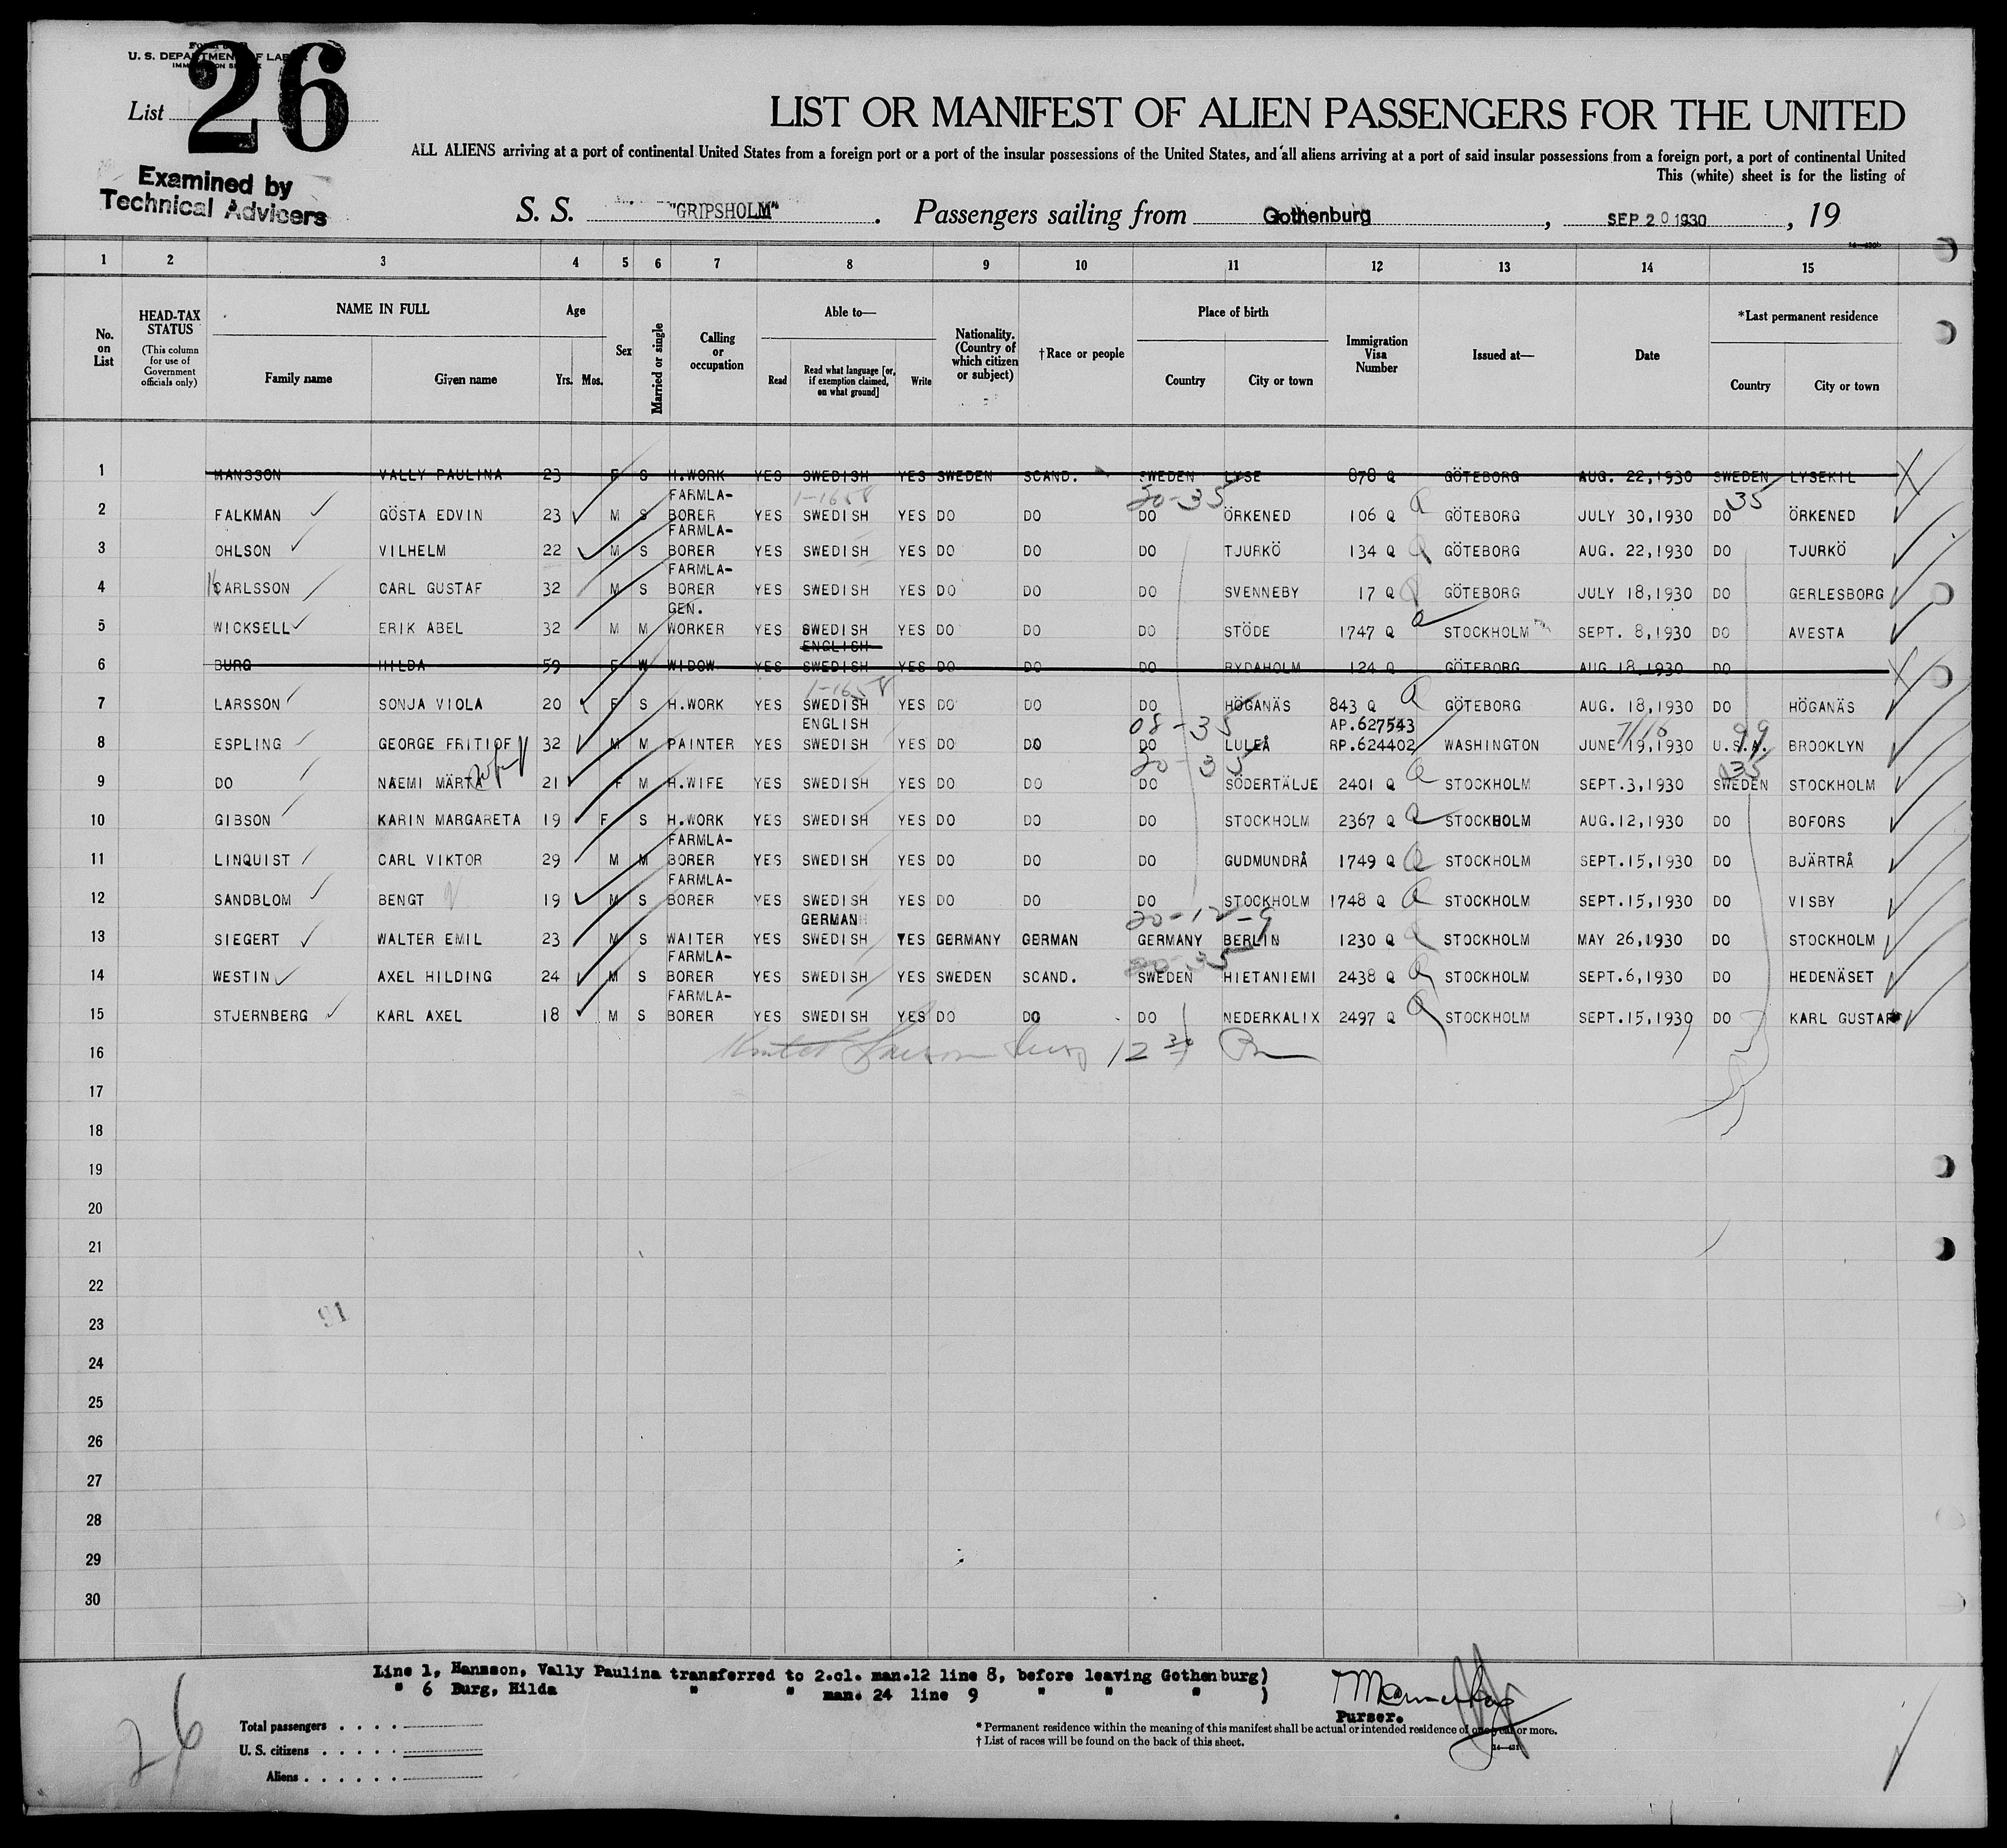 Form
U. S. DEPARTMENT OF LABOR
List 26
Examined by
Technical Advisers
LIST OR MANIFEST OF ALIEN PASSENGERS FOR THE UNITED
ALL ALIENS arriving at a port of continental United States from a foreign port or a port of the insular possessions of the United States, and all aliens arriving at a port of said insular possessions from a foreign port, a port of continental United
This (white) sheet is for the listing of
S. S. "GRIPSHOLM". Passengers sailing from Gothenburg, SEP 20 1930, 19
1 2 3 4 5 6 7 8 9 10 11 12 13 14 15
No. on List
HEAD-TAX STATUS
(This column for use of Government officials only)
NAME IN FULL
Family name Given name
Age
Yrs. Mos.
Sex
Married or single
Calling or occupation
Able to—
Read
Read what language [or, if exemption claimed, on what ground]
Write
Nationality. (Country of which citizen or subject)
†Race or people
Place of birth
Country City or town
Immigration Visa Number
Issued at—
Date
*Last permanent residence
Country City or town
1 HANSSON VALLY PAULINA 23 F S H.WORK YES SWEDISH YES SWEDEN SCAND. SWEDEN LYSE 878 Q GÖTEBORG AUG. 22,1930 SWEDEN LYSEKIL X
1-1658 20-35 35
2 FALKMAN GÖSTA EDVIN 23 M S FARMLA-BORER YES SWEDISH YES DO DO DO ÖRKENED 106 Q GÖTEBORG JULY 30,1930 DO ÖRKENED
3 OHLSON VILHELM 22 M S FARMLA-BORER YES SWEDISH YES DO DO DO TJURKÖ 134 Q GÖTEBORG AUG. 22,1930 DO TJURKÖ
4 CARLSSON CARL GUSTAF 32 M S FARMLA-BORER YES SWEDISH YES DO DO DO SVENNEBY 17 Q GÖTEBORG JULY 18,1930 DO GERLESBORG
5 WICKSELL ERIK ABEL 32 M M GEN. WORKER YES SWEDISH YES DO DO DO STÖDE 1747 Q STOCKHOLM SEPT. 8,1930 DO AVESTA
6 BURG HILDA 59 F W WIDOW YES ENGLISH SWEDISH YES DO DO DO RYDAHOLM 124 Q GÖTEBORG AUG 18.1930 DO X
1-1658
7 LARSSON SONJA VIOLA 20 F S H.WORK YES SWEDISH YES DO DO DO HÖGANÄS 843 Q GÖTEBORG AUG. 18,1930 DO HÖGANÄS
08-35 7/18 99
8 ESPLING GEORGE FRITIOF 32 M M PAINTER YES ENGLISH SWEDISH YES DO DO DO LULEÅ AP.627543 RP.624402 WASHINGTON JUNE 19,1930 U.S.A. BROOKLYN
20-35 35
9 DO NAEMI MÄRTA wife 21 F M H.WIFE YES SWEDISH YES DO DO DO SÖDERTÄLJE 2401 Q STOCKHOLM SEPT.3,1930 SWEDEN STOCKHOLM
10 GIBSON KARIN MARGARETA 19 F S H.WORK YES SWEDISH YES DO DO DO STOCKHOLM 2367 Q STOCKHOLM AUG.12,1930 DO BOFORS
11 LINQUIST CARL VIKTOR 29 M M FARMLA-BORER YES SWEDISH YES DO DO DO GUDMUNDRÅ 1749 Q STOCKHOLM SEPT.15,1930 DO BJÄRTRÅ
12 SANDBLOM BENGT 19 M S FARMLA-BORER YES SWEDISH YES DO DO DO STOCKHOLM 1748 Q STOCKHOLM SEPT.15,1930 DO VISBY
20-12-9
13 SIEGERT WALTER EMIL 23 M S WAITER YES GERMAN SWEDISH YES GERMANY GERMAN GERMANY BERLIN 1230 Q STOCKHOLM MAY 26,1930 DO STOCKHOLM
20-35
14 WESTIN AXEL HILDING 24 M S FARMLA-BORER YES SWEDISH YES SWEDEN SCAND. SWEDEN HIETANIEMI 2438 Q STOCKHOLM SEPT.6,1930 DO HEDENÄSET
15 STJERNBERG KARL AXEL 18 M S FARMLA-BORER YES SWEDISH YES DO DO DO NEDERKALIX 2497 Q STOCKHOLM SEPT.15,1930 DO KARL GUSTAF
16
17
18
19
20
21
22
23
24
25
26
27
28
29
30
Line 1, Hansson, Vally Paulina transferred to 2.cl. man.12 line 8, before leaving Gothenburg)
" 6 Burg, Hilda " " man. 24 line 9 " " " )
Purser.
26
Total passengers
U. S. citizens
Aliens
* Permanent residence within the meaning of this manifest shall be actual or intended residence of one year or more.
† List of races will be found on the back of this sheet.